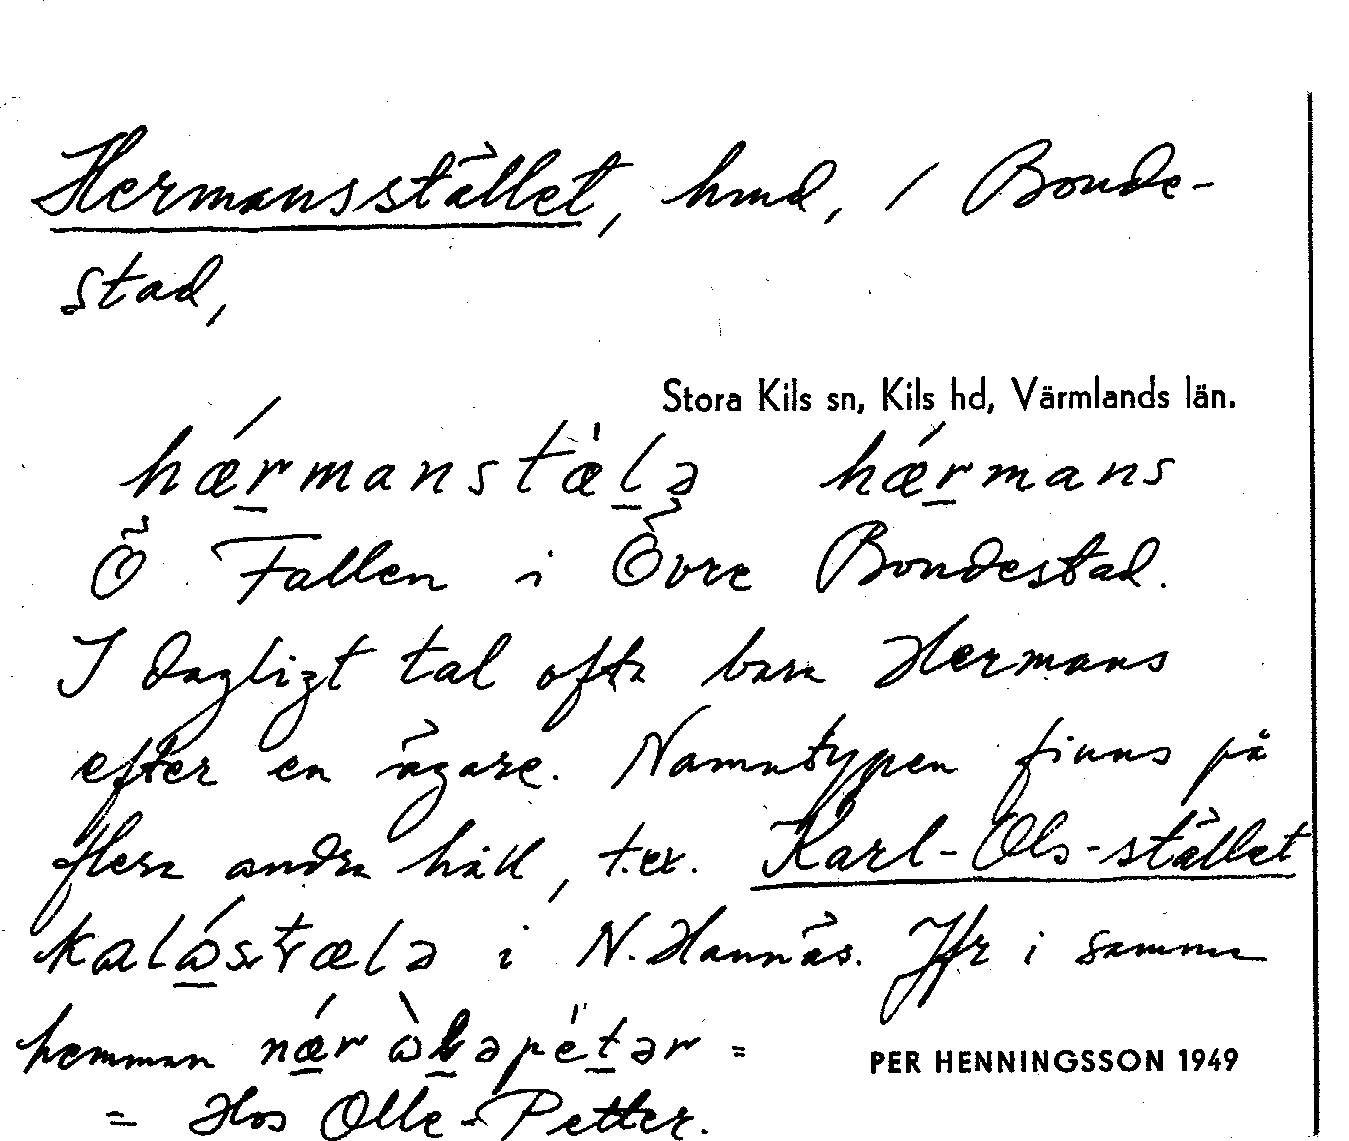 Hermansstället, hmd, i Bonde-
stad,
Stora Kils sn, Kils hd, Värmlands län.
hǽrmanstælə hǽrmans
Ö Fallen i Övre Bondestad.
I dagligt tal ofta bara Hermans
efter en ägare. Namntypen finns på
flera andra håll, t.ex. Karl-Ols-stället
i N. Hannäs. Jfr i samma
hemman =
PER HENNINGSSON 1949
= Hos Olle-Petter.